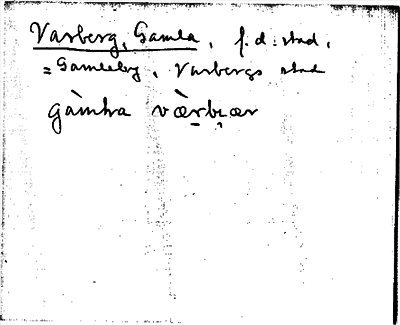 Varberg, Gamla, f. d. stad,
= Gamleby, Varbergs stad
gàmlra væ̀rbær